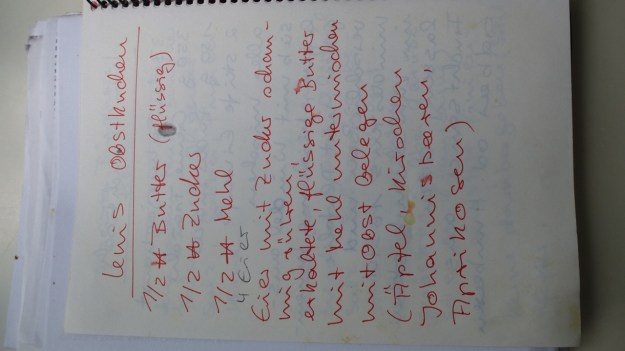 Lenis Obstkuchen
1/2 ℔ Butter (flüssig)
1/2 ℔ Zucker
1/2 ℔ Mehl
4 Eier
Eier mit Zucker schau-
mig rühren
erkaltete, flüssige Butter
mit Mehl untermischen
mit Obst belegen
(Äpfel, Kirschen
Johannisbeeren,
Aprikosen)